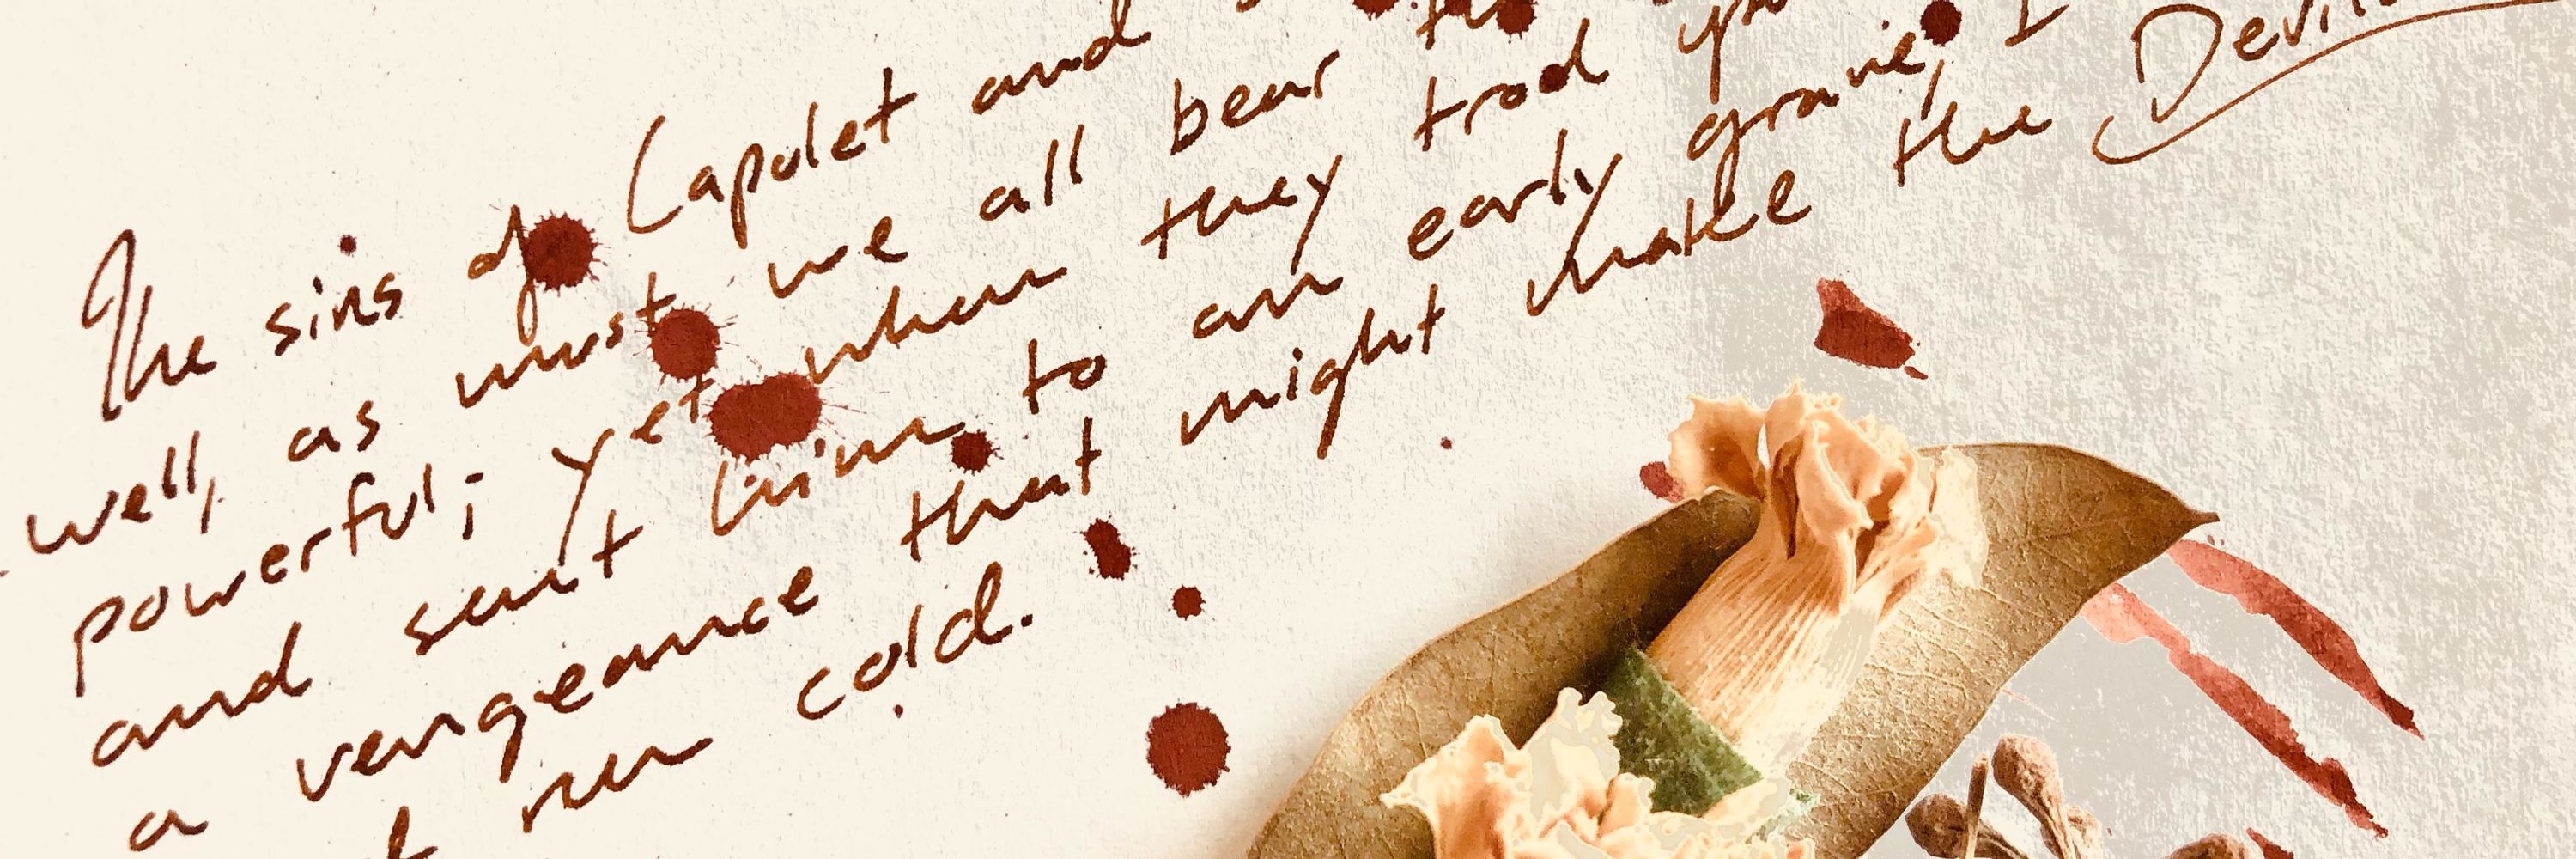 The sins of Capulet and
well, as must we all bear
powerful; yet when they trod
and sent him to an early grave, I
a vengeance that might make the Devil
run cold.